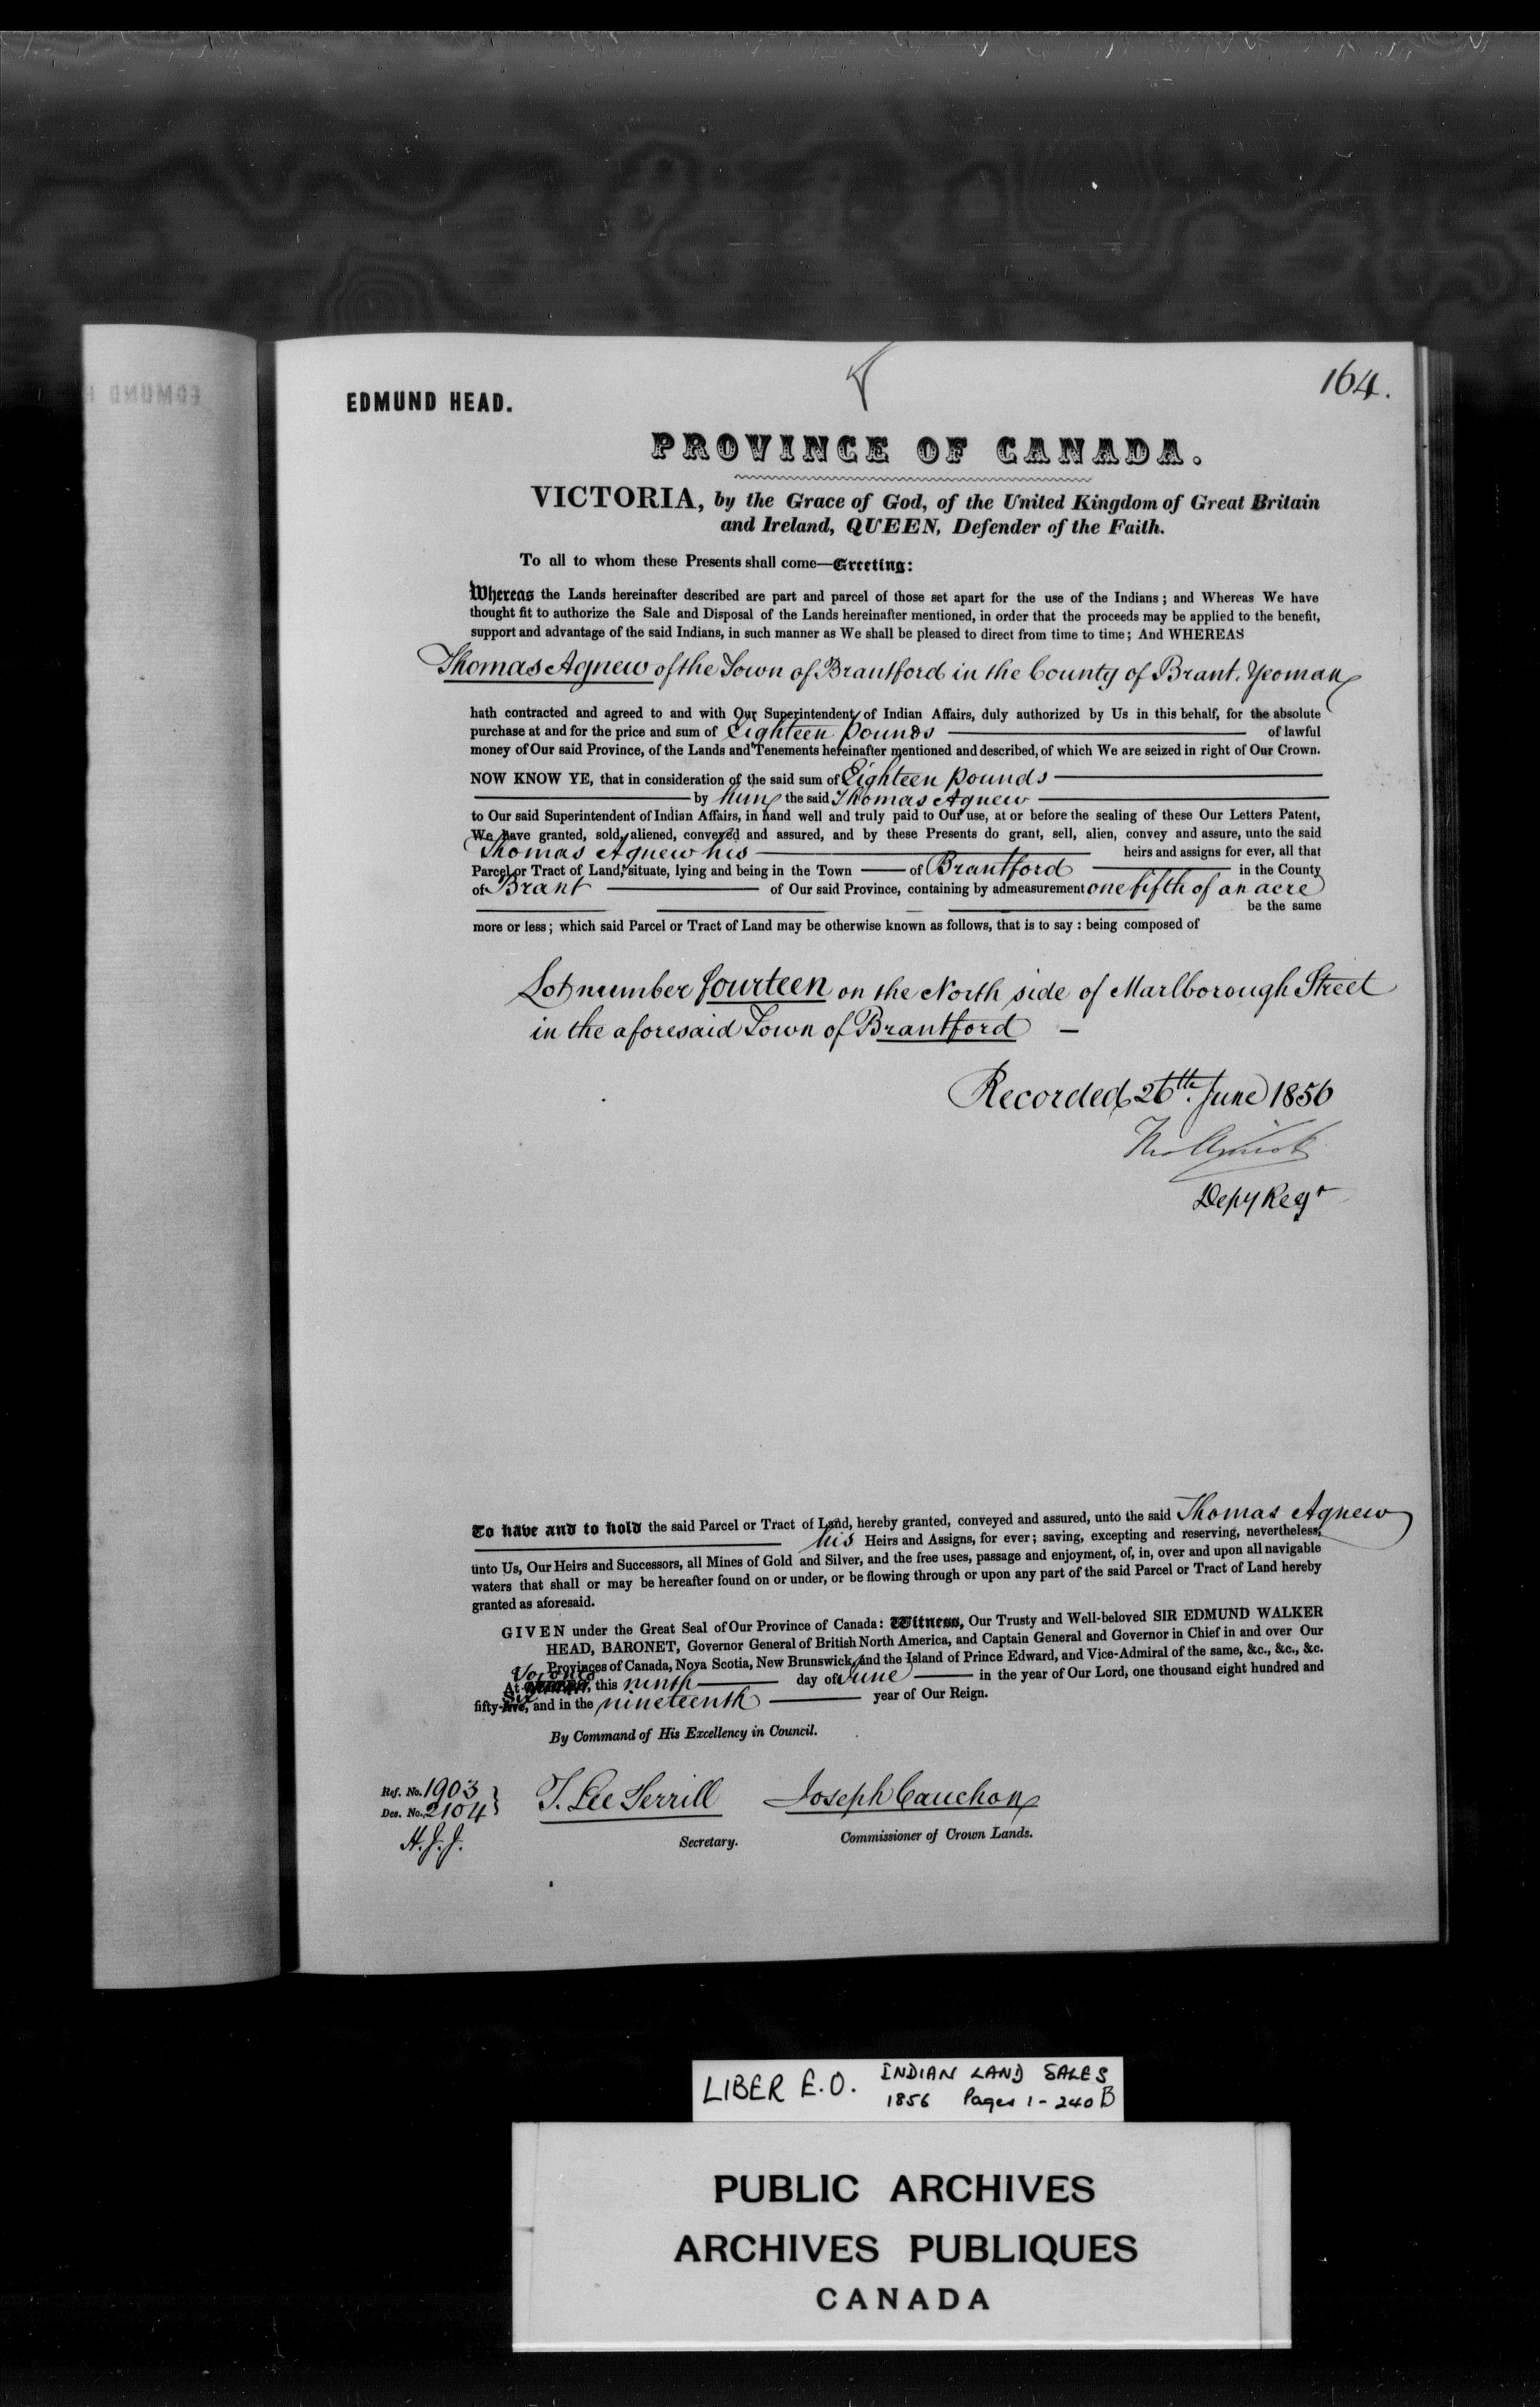 164.
EDMUND HEAD.
PROVINCE OF CANADA.
VICTORIA, by the Grace of God, of the United Kingdom of Great Britain
and Ireland, QUEEN, Defender of the Faith.
To all to whom these Presents shall come—Greeting:
Whereas the Lands hereinafter described are part and parcel of those set apart for the use of the Indians; and Whereas We have
thought fit to authorize the Sale and Disposal of the Lands hereinafter mentioned, in order that the proceeds may be applied to the benefit,
support and advantage of the said Indians, in such manner as We shall be pleased to direct from time to time; And WHEREAS
Thomas Agnew of the Town of Brantford in the County of Brant. Yeoman
hath contracted and agreed to and with Our Superintendent of Indian Affairs, duly authorized by Us in this behalf, for the absolute
purchase at and for the price and sum of Eighteen Pounds of lawful
money of Our said Province, of the Lands and Tenements hereinafter mentioned and described, of which We are seized in right of Our Crown.
NOW KNOW YE, that in consideration of the said sum of Eighteen pounds
by him the said Thomas Agnew
to Our said Superintendent of Indian Affairs, in hand well and truly paid to Our use, at or before the sealing of these Our Letters Patent,
We have granted, sold, aliened, conveyed and assured, and by these Presents do grant, sell, alien, convey and assure, unto the said
Thomas Agnew his heirs and assigns for ever, all that
Parcel or Tract of Land, situate, lying and being in the Town of Brantford in the County
of Brant of Our said Province, containing by admeasurement one fifth of an acre
be the same
more or less; which said Parcel or Tract of Land may be otherwise known as follows, that is to say: being composed of
Lot number fourteen on the North side of Marlborough Street
in the aforesaid Town of Brantford —
Recorded 26th. June 1856
Depy Regr
To have and to hold the said Parcel or Tract of Land, hereby granted, conveyed and assured, unto the said Thomas Agnew
his Heirs and Assigns, for ever; saving, excepting and reserving, nevertheless,
unto Us, Our Heirs and Successors, all Mines of Gold and Silver, and the free uses, passage and enjoyment, of, in, over and upon all navigable
waters that shall or may be hereafter found on or under, or be flowing through or upon any part of the said Parcel or Tract of Land hereby
granted as aforesaid.
GIVEN under the Great Seal of Our Province of Canada: Witness, Our Trusty and Well-beloved SIR EDMUND WALKER
HEAD, BARONET, Governor General of British North America, and Captain General and Governor in Chief in and over Our
Provinces of Canada, Nova Scotia, New Brunswick, and the Island of Prince Edward, and Vice-Admiral of the same, &c., &c., &c.
At Toronto, this ninth day of June in the year of Our Lord, one thousand eight hundred and
fifty-Six, and in the nineteenth year of Our Reign.
By Command of His Excellency in Council.
Ref. No. 1903
Des. No. 2104
H.J.J.
T. Lee Terrill Joseph Cauchon
Secretary. Commissioner of Crown Lands.
LIBER E.O. INDIAN LAND SALES
1856 Pages 1 - 240 B
PUBLIC ARCHIVES
ARCHIVES PUBLIQUES
CANADA